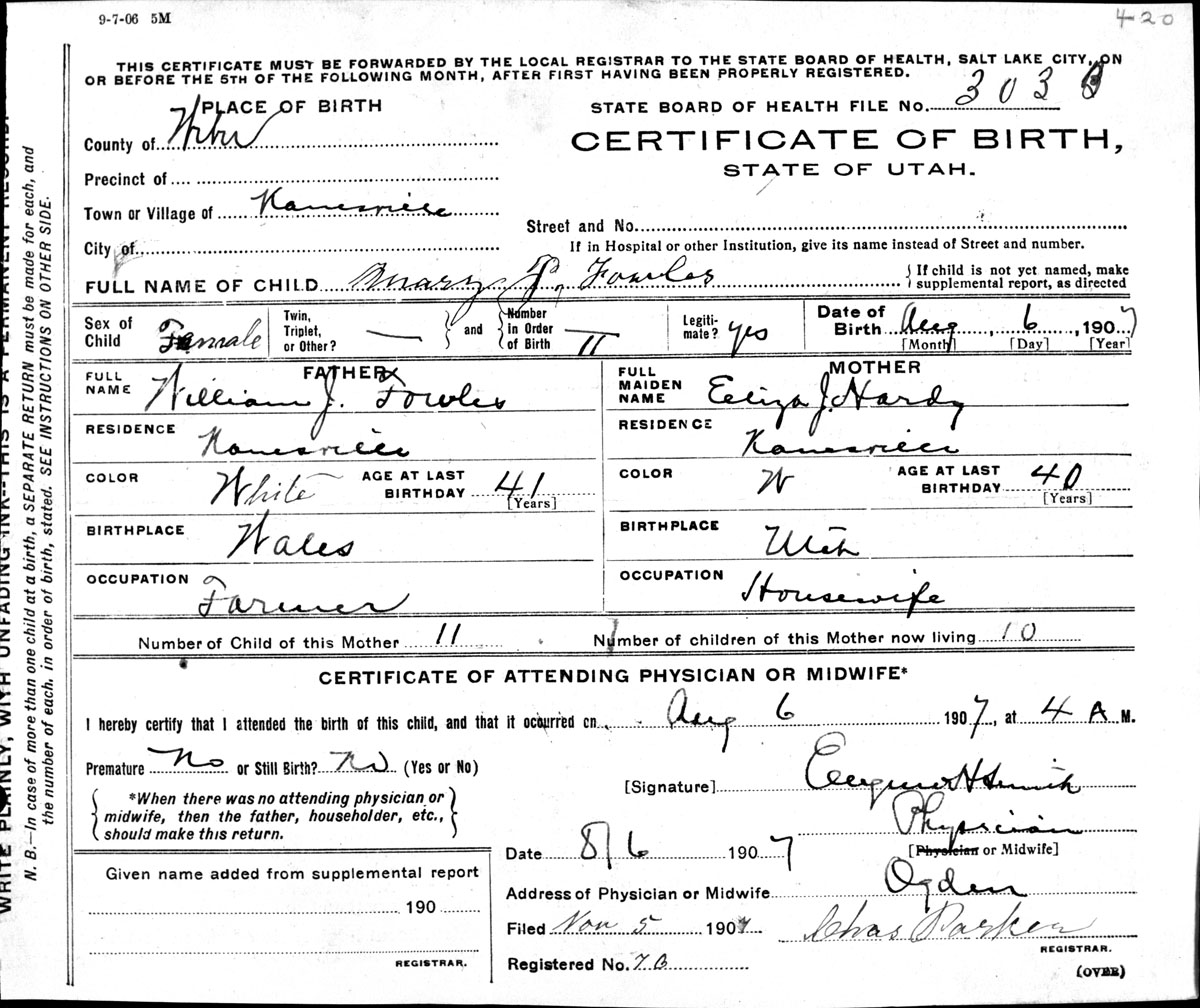 9-7-06 5M
420
THIS CERTIFICATE MUST BE FORWARDED BY THE LOCAL REGISTRAR TO THE STATE BOARD OF HEALTH, SALT LAKE CITY, ON
OR BEFORE THE 5TH OF THE FOLLOWING MONTH, AFTER FIRST HAVING BEEN PROPERLY REGISTERED.
PLACE OF BIRTH
STATE BOARD OF HEALTH FILE No. 303
County of Weber
CERTIFICATE OF BIRTH,
STATE OF UTAH.
Precinct of
Town or Village of Kanesville
Street and No.
City of
If in Hospital or other Institution, give its name instead of Street and number.
FULL NAME OF CHILD Mary J. Fowles { If child is not yet named, make
supplemental report, as directed
Sex of Child Female Twin, Triplet, or Other? — and Number in Order of Birth 11 Legitimate? yes Date of Birth Aug 6, 1907
[Month] [Day] [Year]
FATHER
FULL NAME William J. Fowles
RESIDENCE Kanesville
COLOR White AGE AT LAST BIRTHDAY 41
[Years]
BIRTHPLACE Wales
OCCUPATION Farmer
MOTHER
FULL MAIDEN NAME Eliza J. Hardy
RESIDENCE Kanesville
COLOR W AGE AT LAST BIRTHDAY 40
[Years]
BIRTHPLACE Utah
OCCUPATION Housewife
Number of Child of this Mother 11 Number of children of this Mother now living 10
CERTIFICATE OF ATTENDING PHYSICIAN OR MIDWIFE*
I hereby certify that I attended the birth of this child, and that it occurred on Aug 6 1907, at 4 A M.
Premature No or Still Birth? No (Yes or No)
[Signature] H Smith
*When there was no attending physician or
midwife, then the father, householder, etc.,
should make this return.
Physician
[Physician or Midwife]
Date 8/6 1907
Address of Physician or Midwife Ogden
Filed Nov 5 1907 Chas Parker
REGISTRAR.
Registered No. 76
(OVER)
Given name added from supplemental report
190
REGISTRAR.
WRITE PLAINLY, WITH UNFADING INK--THIS IS A PERMANENT RECORD.
N. B.—In case of more than one child at a birth, a SEPARATE RETURN must be made for each, and
the number of each, in order of birth, stated. SEE INSTRUCTIONS ON OTHER SIDE.